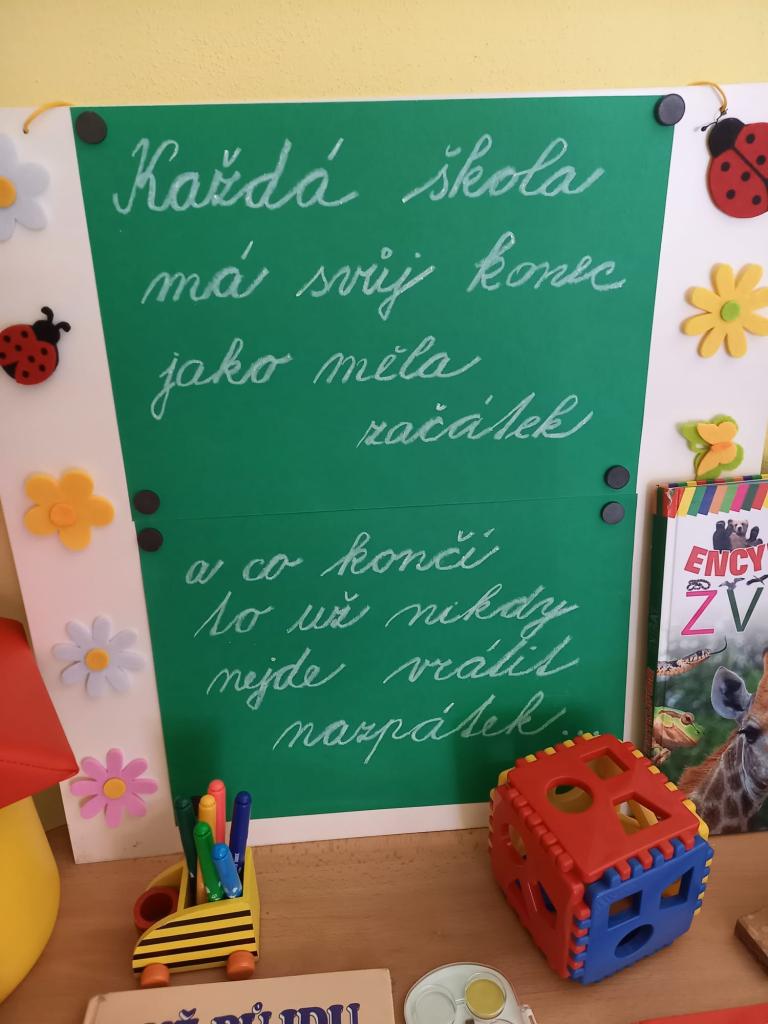 Každá škola
má svůj konec
jako měla
začátek
a co končí
to už nikdy
nejde vrátit
nazpátek...
ENCY
ZV
PŮJDU